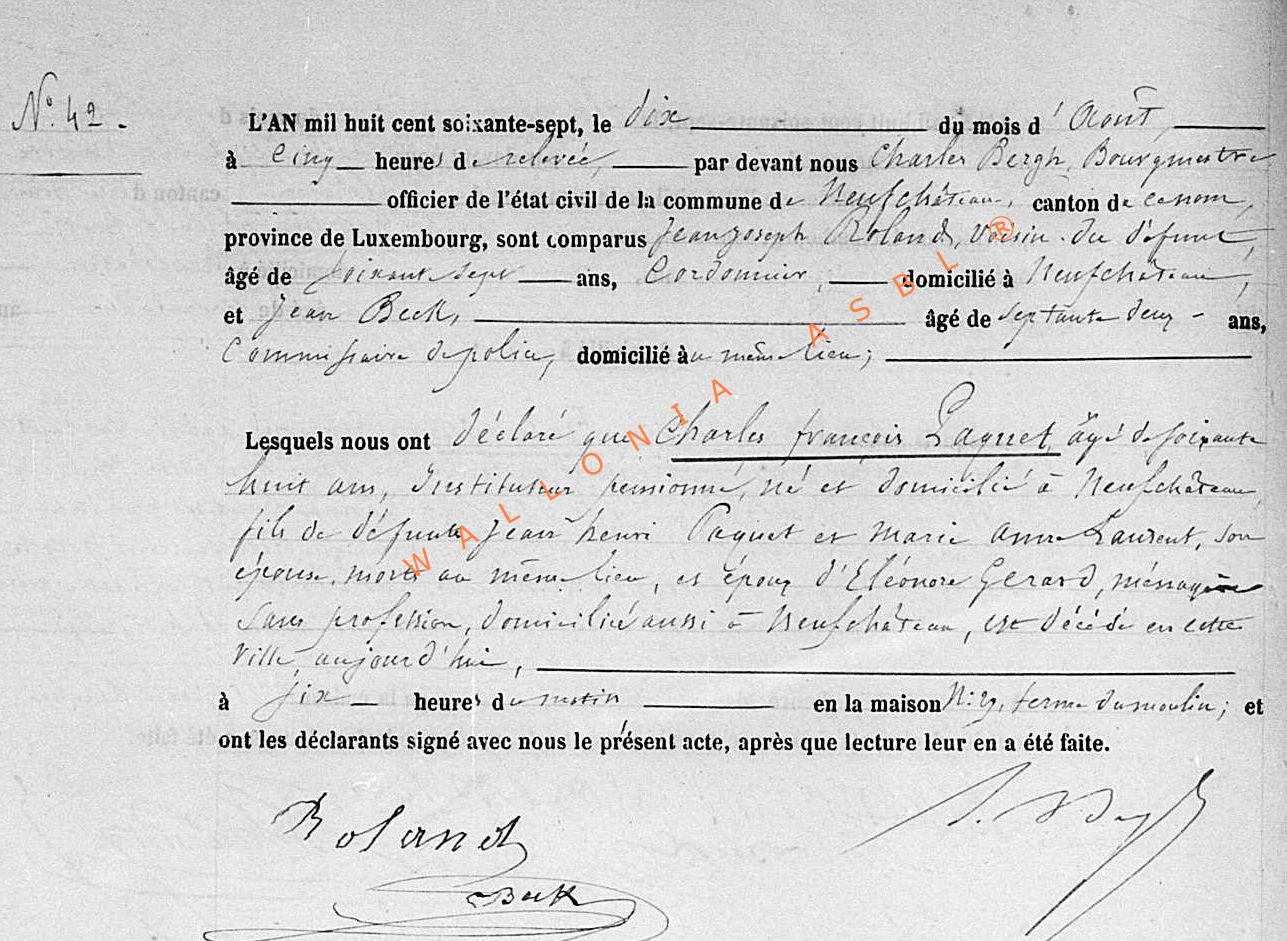 N° 42.
L'AN mil huit cent soixante-sept, le dix du mois d'Août,
à cinq heures de relevée, par devant nous Charles Bergh, Bourgmestre
officier de l'état civil de la commune de Neufchâteau, canton de ce nom,
province de Luxembourg, sont comparus Jean Joseph Roland, voisin du défunt,
âgé de soixante sept ans, Cordonnier, domicilié à Neufchâteau,
et Jean Beck, âgé de septante deux ans,
Commissaire de police, domicilié au même lieu;
Lesquels nous ont déclaré que Charles françois Paquet, âgé de soixante
huit ans, Instituteur pensionné, né et domicilié à Neufchâteau,
fils de défunts Jean henri Paquet et marie anne Laurent, son
épouse, morts au même lieu, et époux d'Eléonore Gerard, ménagère
sans profession, domiciliée aussi à Neufchâteau, est décédé en cette
ville, aujourd'hui,
à six heures du matin en la maison N: ferme du moulin; et
ont les déclarants signé avec nous le présent acte, après que lecture leur en a été faite.
Roland
Beck
WALLONIA ASBL ®